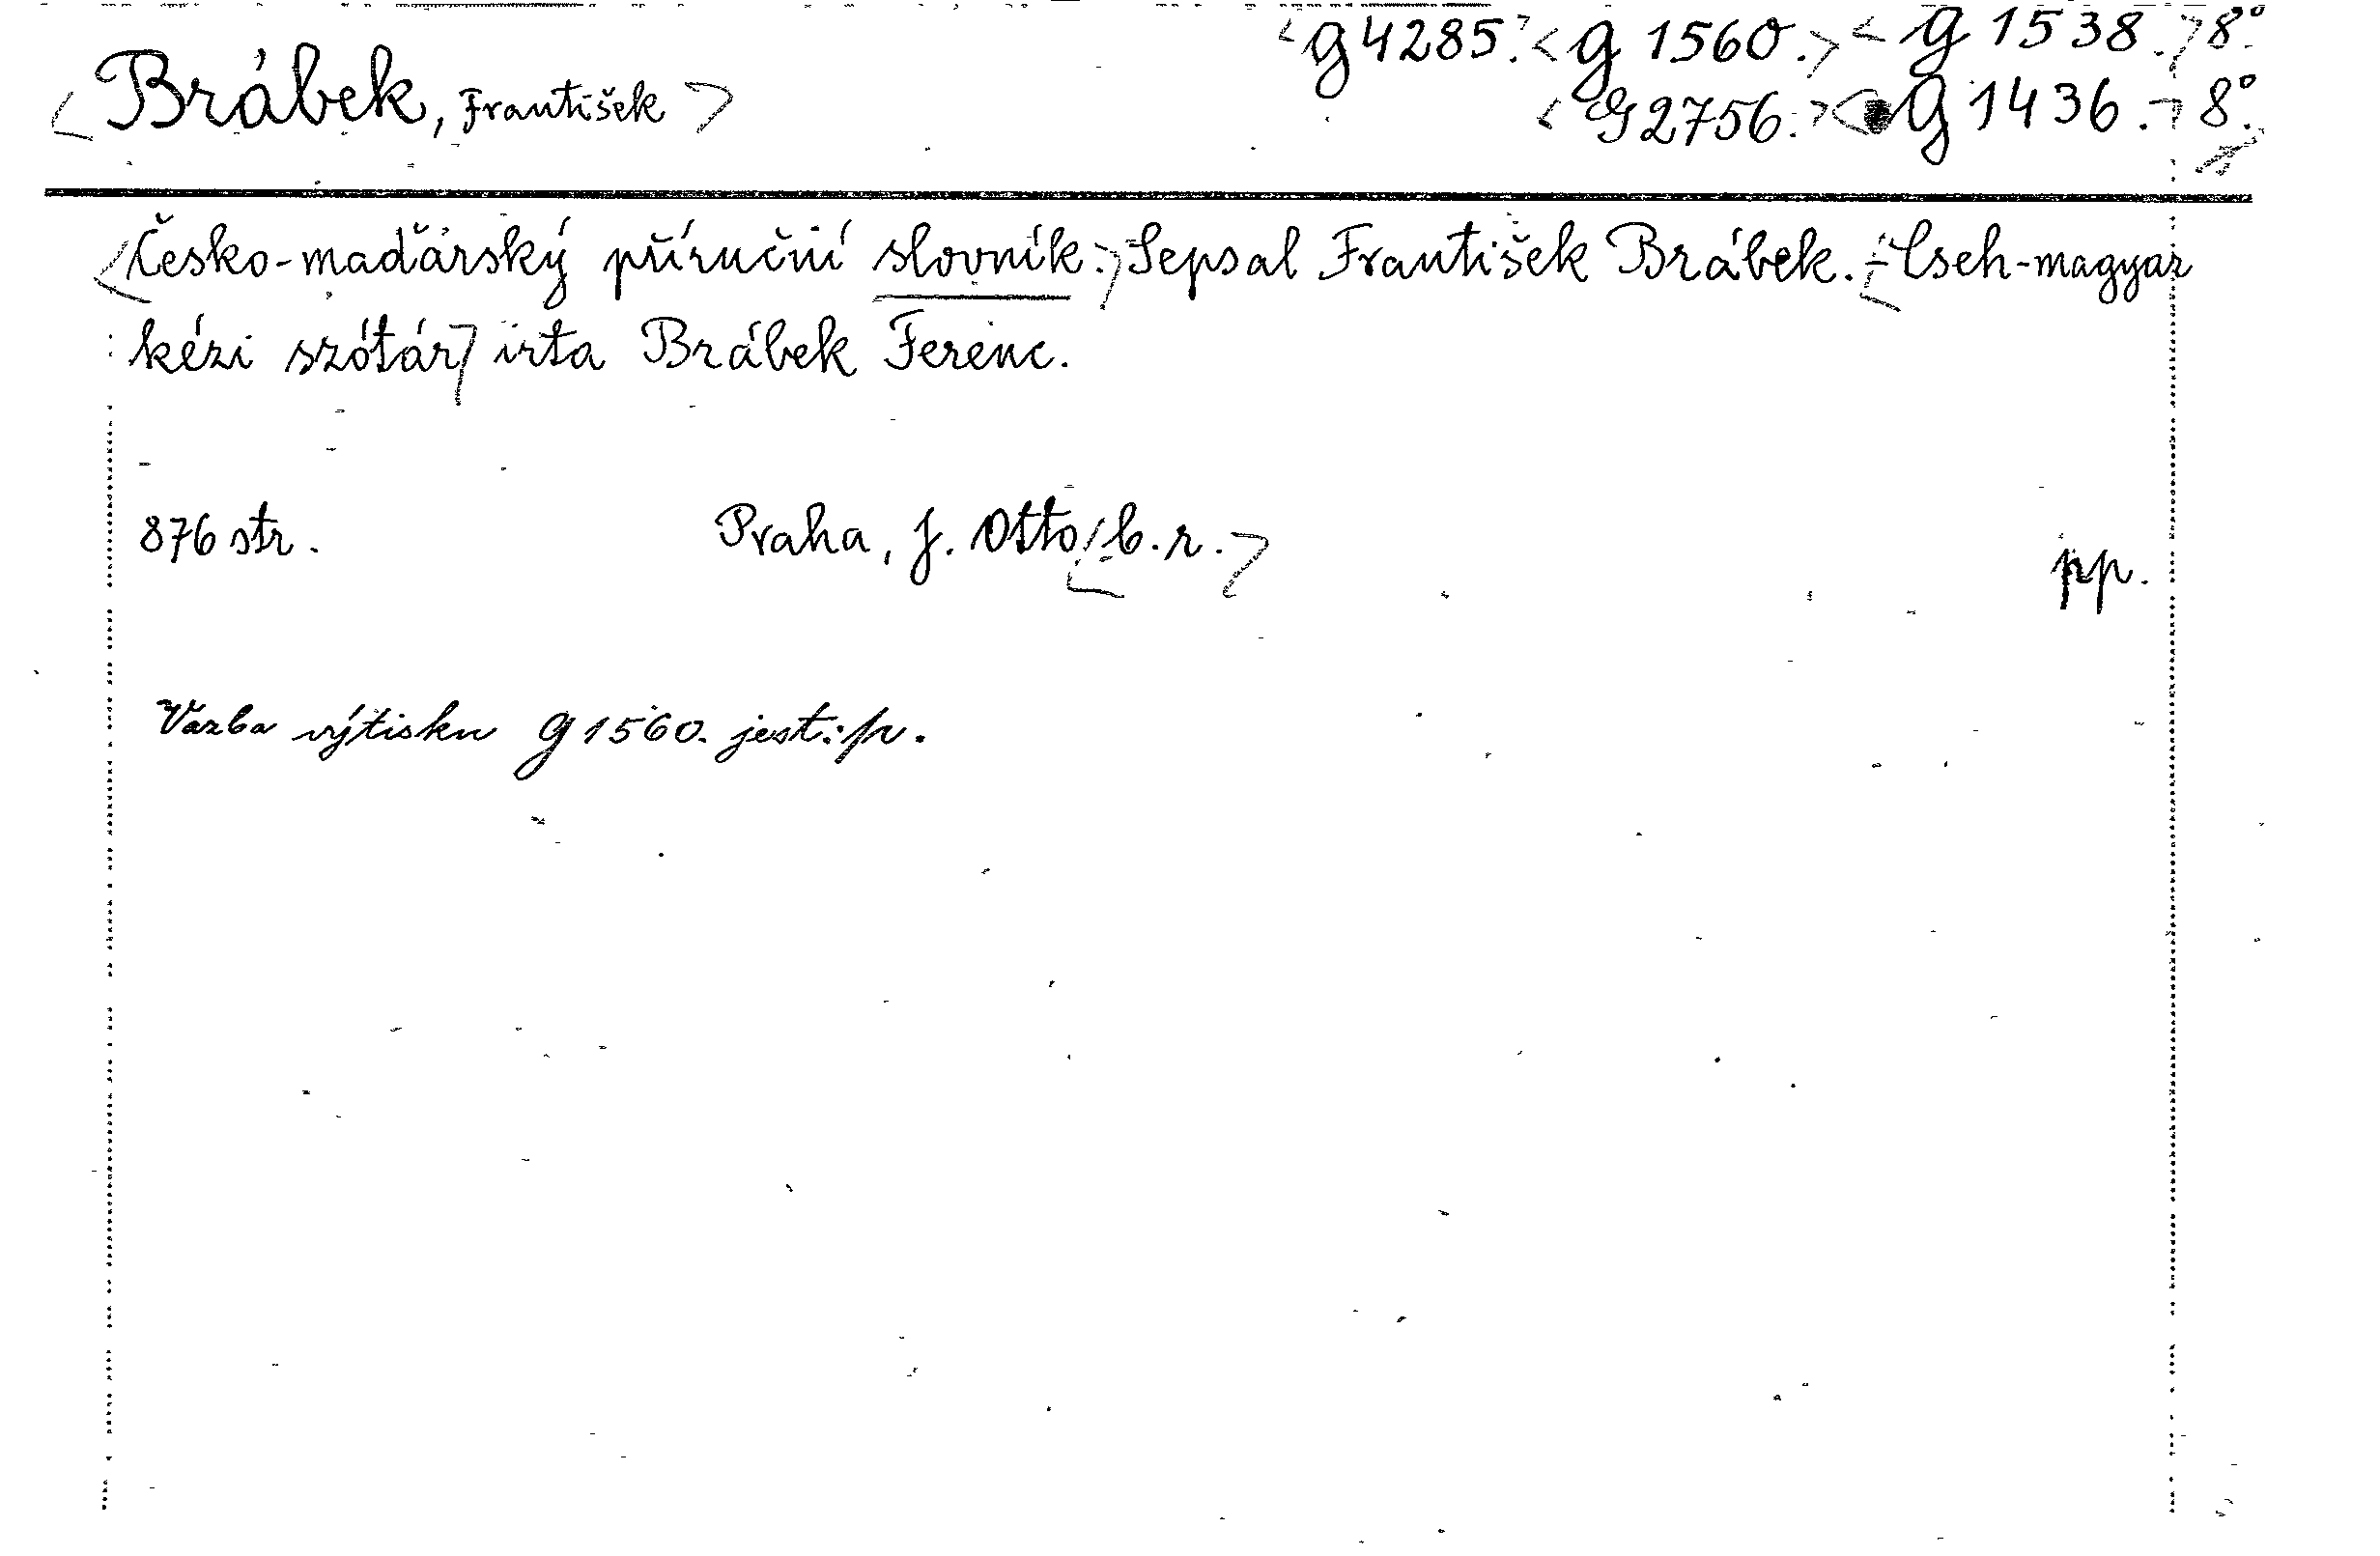 <g 4285.> <g 1560.> <g 1538.> 8°
<Brábek, František>
<g 2756.> <g 1436.> 8°.
<Česko-maďarský příruční slovník.> Sepsal František Brábek. - <Cseh-magyar
kézi szótár> irta Brábek Ferenc.
876 str. Praha, J. Otto <b. r.> pp.
Vazba výtisku g 1560. jest: p.